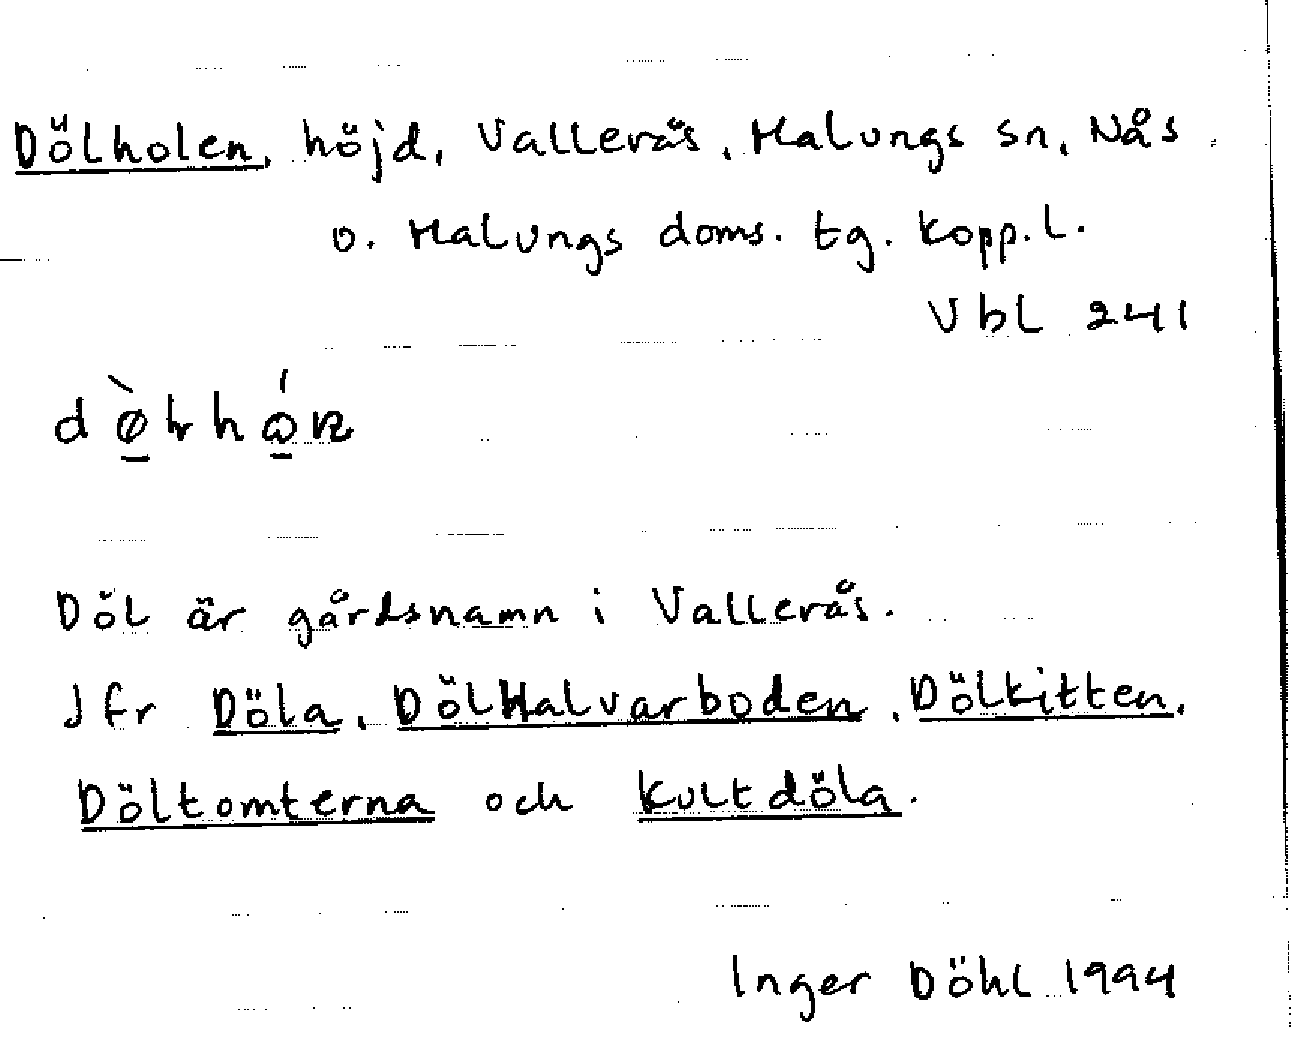 Dölholen, höjd, Vallerås, Malungs sn, Nås
o. Malungs doms. tg. Kopp.l.
Vbl 241
Döl är gårdsnamn i Vallerås.
Jfr Döla, DölHalvarboden, Dölkitten,
Döltomterna och Kultdöla.
Inger Döhl 1994